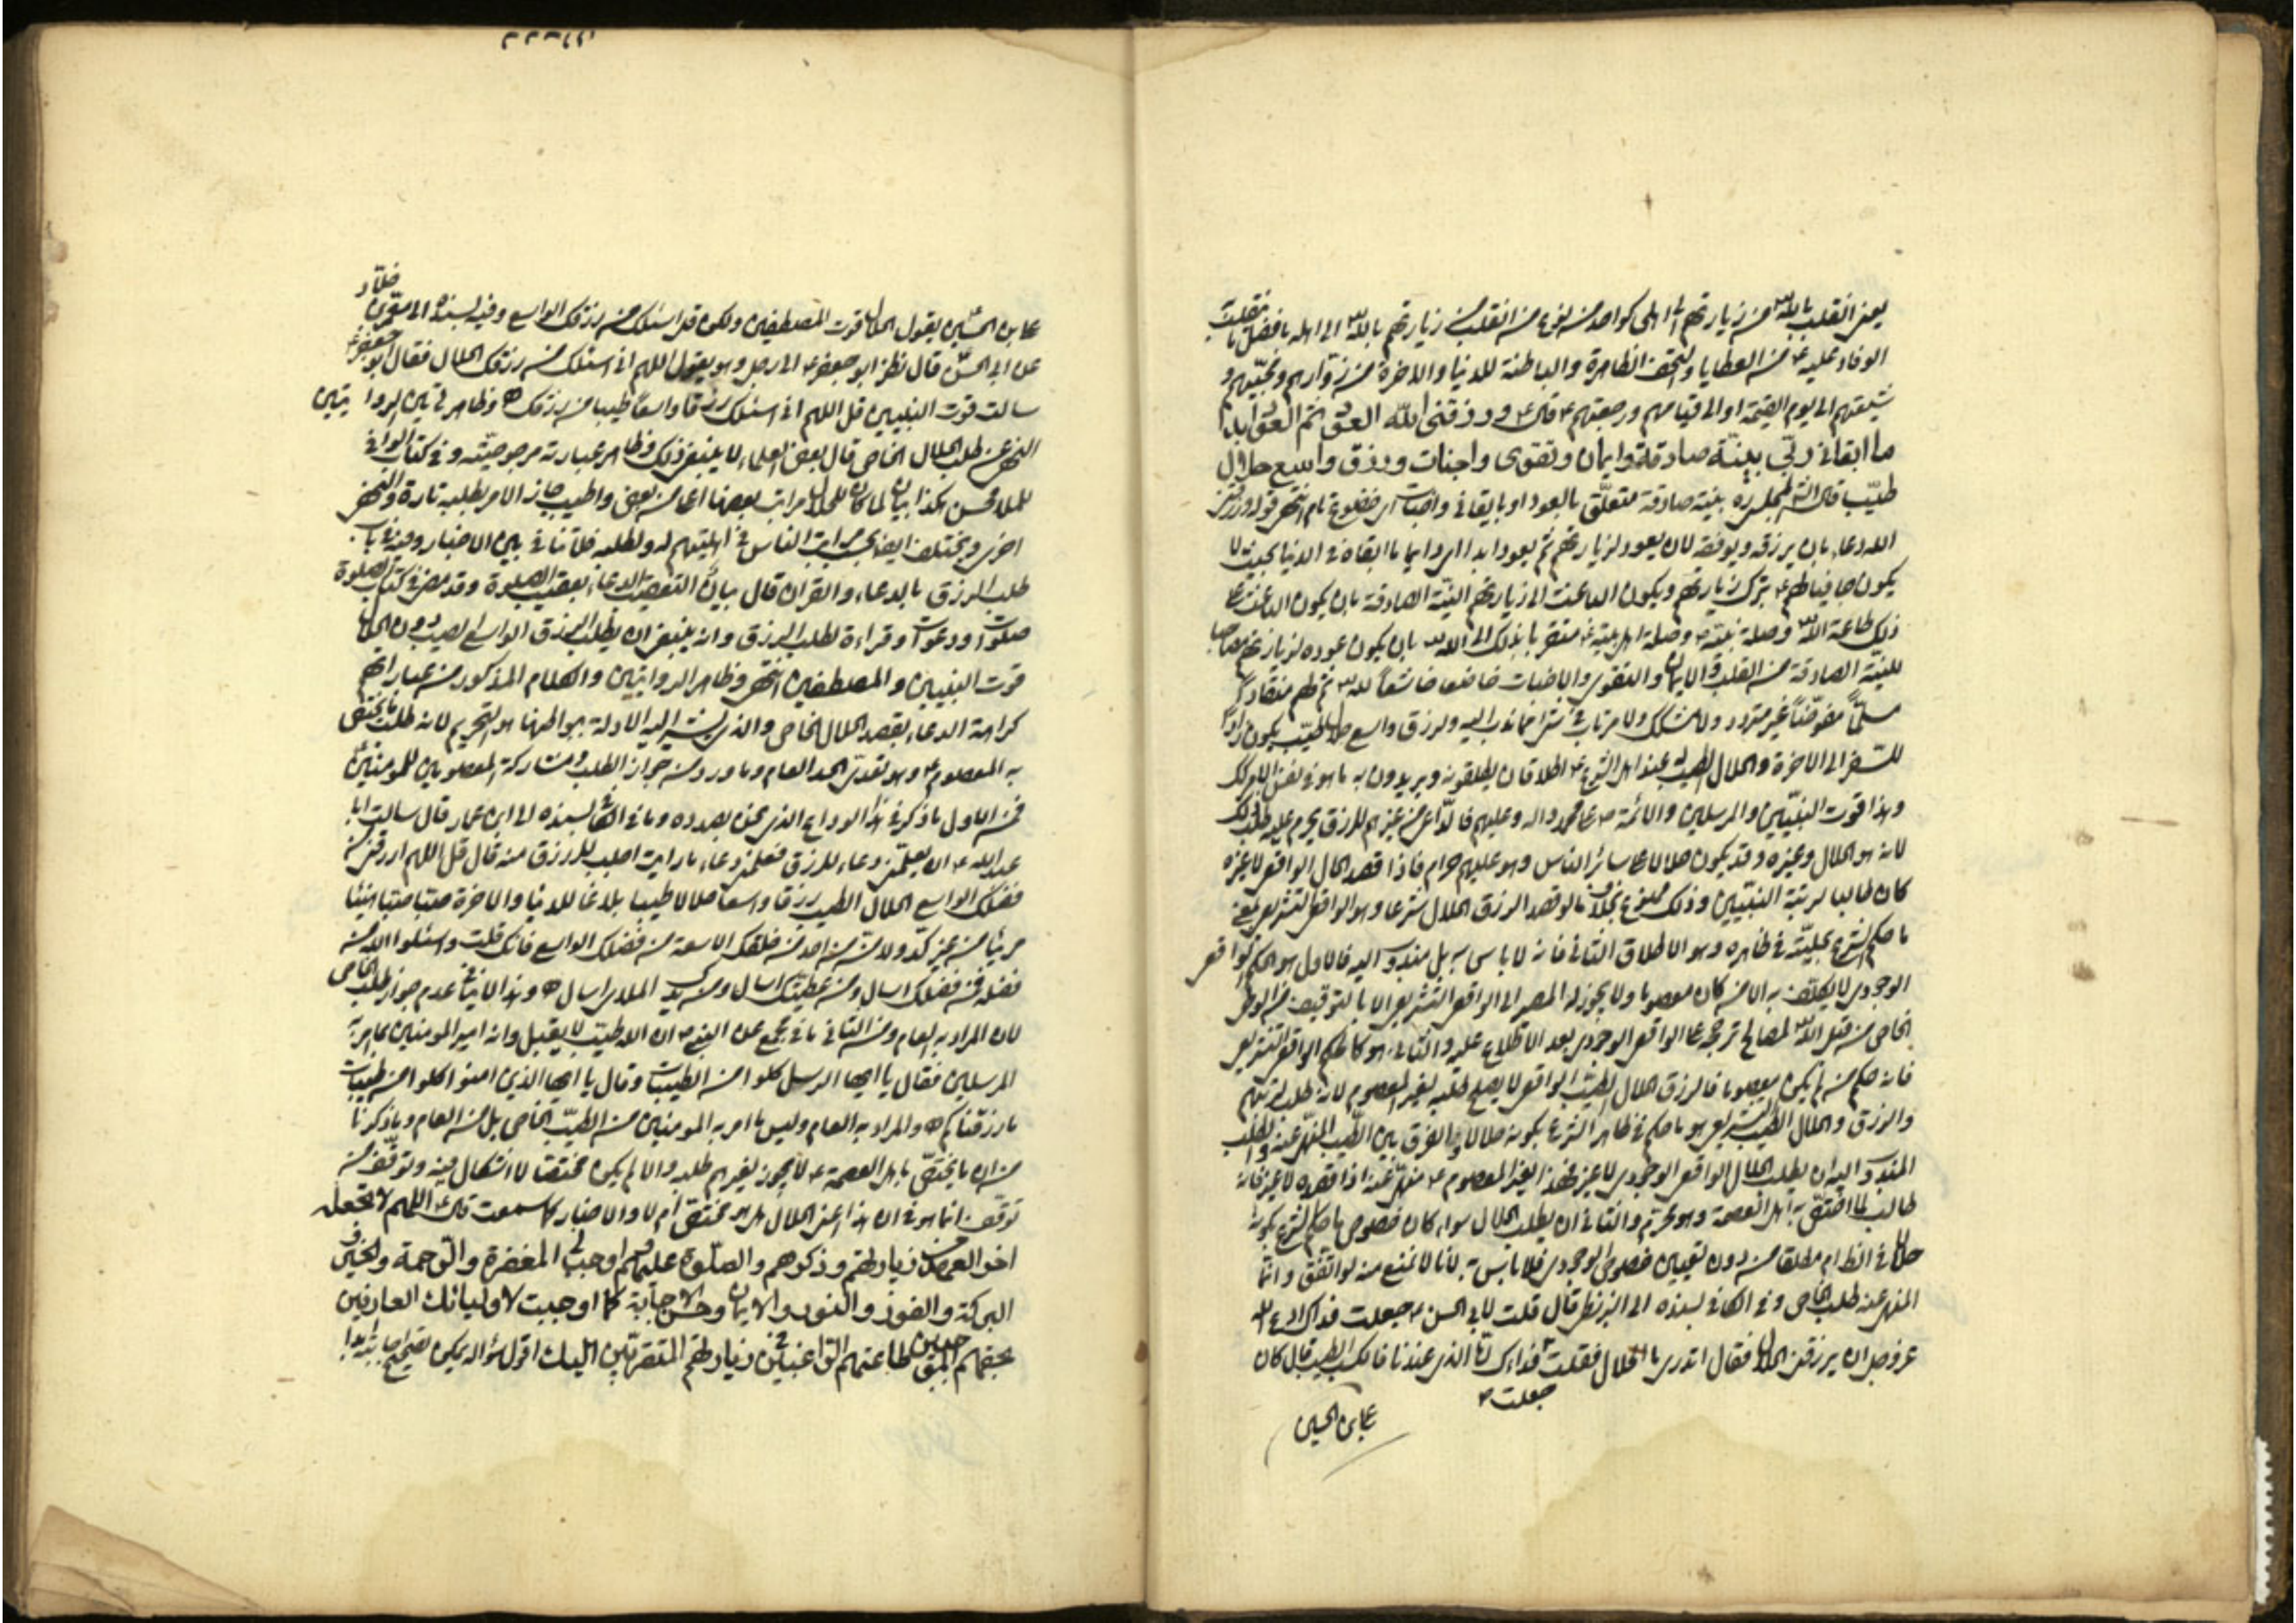 يعني انقلب بالله من زيارتهم الى اهلي كواحد منه نوع من انقلب من زيارتهم بالله الى اهله بافضل ما ينقلب به
الوفاد عليه من العطايا والتحف الظاهرة والباطنة للدنيا والاخرة من زوارهم ومحبيهم و
شيعتهم الى يوم القيمة او الى قيامهم ورجعتهم قال ورزقني الله العود ثم العود ابدا
ما ابقاني ربي بنية صادقة وايمان وتقوى واخبات ورزق واسع حلال
طيب قال المجلسي ره بنية صادقة متعلق بالعود او بابقاني واخبات اي خضوع تام انتهى قوله ورزقني
الله دعاء بان يرزقه ويوفقه لان يعود لزيارتهم ثم يعود ابدا اي دايما ما ابقاه في الدنيا بحيث لا
يكون جافيا لهم بترك زيارتهم ويكون الباعث الى زيارتهم النية الصادقة بان يكون الباعث على
ذلك طاعة الله وصلة نبيه وصلة اهل بيته متقربا بذلك الى الله بان يكون عوده لزيارتهم مصاحبا
للنية الصادقة من القلب والايمان والتقوى والاخبات خاضعا خاشعا لله ثم لهم منقادا
مسلما مفوضا غير متردد ولا شاك ولا مرتاب في شيء مما ندب اليه ولرزق واسع حلال طيب يكون زادا
للسفر الى الاخرة والحلال الطيب عند اهل الشرع اطلاقان يطلقونه ويريدون به ما هو في نفس الامر كذلك
وهذا قوت النبيين والمرسلين والائمة على محمد واله وعليهم فالداعي من غيرهم للرزق يحرم عليه طلب ذلك
لانه هو الحلال وغيره وقد يكون حلالا على سائر الناس وهو عليهم حرام فاذا قصد الحال الواقعي لا غيره
كان طالبا لرتبة النبيين وذلك ممنوع بخلاف ما لو قصد الرزق الحلال شرعا وهو الواقعي التشريعي يعني
ما حكم الشرع بحليته في ظاهره وهو الاطلاق الثاني فانه لا باس به بل مندوب اليه فالاول هو الحكم الواقعي
الوجودي لا يكلف به الا من كان معصوما ولا يجوز له المصير الى الواقعي التشريعي الا بالتوقيف من الوحي
الخاص من قبل الله لمصالح ترجحه على الواقعي الوجودي بعد الاطلاع عليه والثاني هو كالحكم الواقعي التشريعي
فانه حكم من لم يكن معصوما فالرزق الحلال الطيب الواقعي لا يصلح طلبه لغير المعصوم لانه طلب لرتبتهم
والرزق والحلال الطيب التشريعي هو ما حكم في ظاهر الشرع بكونه حلالا والفرق بين الطيب المنهي عنه والطلب
المندوب اليه ان يطلب الحلال الواقعي الوجودي لا غير فهذا لغير المعصوم منهي عنه اذا قصده لا غير فانه
طالب لما اختص به اهل العصمة وهو محرم والثاني ان يطلب الحلال سواء كان خصوص ما حكم الشرع بكونه
حلالا في الظاهر ام مطلقا من دون تعيين خصوص الوجودي فلا باس به لانا لا نمنع منه لو اتفق وانما
المنهي عنه طلب الخاص وفي الكافي بسنده الى البزنطي قال قلت لابي الحسن جعلت فداك ادع الله
عز وجل ان يرزقني الحلال فقال اتدري ما الحلال فقلت جعلت فداك اما الذي عندنا فالكسب الطيب قال كان
علي بن الحسين
علي بن الحسين يقول الحلال قوت المصطفين ولكن قل اسئلك من رزقك الواسع وفيه بسنده الى معمر بن خلاد
عن ابي الحسن قال نظر ابو جعفر الى رجل وهو يقول اللهم اني اسئلك من رزقك الحلال فقال ابو جعفر
سالت قوت النبيين قل اللهم اني اسئلك رزقا واسعا طيبا من رزقك وظاهر هاتين الروايتين
النهي عن طلب الحلال الخاص قال بعض العلماء لا ينبغي ذلك وظاهر عبارته مرجوحيته وفي كتاب الوافي
للملا محسن هكذا بيان لما كان للحلال مراتب بعضها اعلى من بعض واطيب جاز الامر بطلبه تارة والنهي
اخرى ويختلف ايضا بحسب مراتب الناس في اهليتهم له ولطلبه فلا تنافي بين الاخبار وفيه في باب
طلب الرزق بالدعاء والقران قال بيان التعقيب الدعاء بعقيب الصلوة وقد مضى في كتاب الصلوة
صلوات ودعوات وقراءة لطلب الرزق وانه ينبغي ان يطلب الرزق الواسع الطيب دون الحلال
قوت النبيين والمصطفين انتهى وظاهر الروايتين والكلام المذكور من عباراتهم
كراهة الدعاء بقصد الحلال الخاص والذي يشير اليه الادلة ببواطنها هو التحريم لانه طلب ما يختص
به المعصوم وهو تعدي الحد العام وما ورد منه جواز الطلب ومشاركة المعصومين للمومنين
فمن الاول ما ذكر في هذا الوداع الذي نحن بصدده وما في الكافي بسنده الى ابن عمار قال سالت ابا
عبد الله ان يعلمني دعاء للرزق فعلمني دعاء ما رايت اجلب للرزق منه قال قل اللهم ارزقني من
فضلك الواسع الحلال الطيب رزقا واسعا حلالا طيبا بلاغا للدنيا والاخرة صبا صبا هنيئا
مريئا من غير كد ولا من من احد من خلقك الا سعة من فضلك الواسع فانك قلت واسئلوا الله من
فضله فمن فضلك اسال ومن عطيتك اسال ومن يدك الملاي اسال وهذا لا ينافي عدم جواز طلب الخاص
لان المراد به العام ومن الثاني ما في مجمع عن النبي ان الله طيب لا يقبل وانه امر المومنين بما امر به
المرسلين فقال يا ايها الرسل كلوا من الطيبات وقال يا ايها الذين امنوا كلوا من طيبات
ما رزقناكم والمراد به العام وليس ما امر به المومنين من الطيب الخاص بل من العام وما ذكرنا
من ان ما يختص باهل العصمة لا يجوز لغيرهم طلبه والا لم يكن مختصا لا اشكال فيه وتوقف من
توقف انما هو في ان هذا اعني الحلال هل هو مختص ام لا والاخبار كما سمعت قال اللهم لا تجعله
اخر العهد من زيارتهم وذكرهم والصلوة عليهم واوجب لي المغفرة والرحمة والخير و
البركة والفوز والنور والايمان وحسن الاجابة كما اوجبت لاوليائك العارفين
بحقهم الموجبين طاعتهم الراغبين في زيارتهم المتقربين اليك اقول سؤاله يمكن تصحيح اجابته ابدا